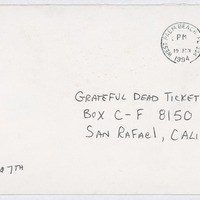 WEST PALM BEACH, FL
PM
15 JUN
1994
GRATEFUL DEAD TICKET
BOX C-F 8150
SAN RAFAEL, CALI
7TH